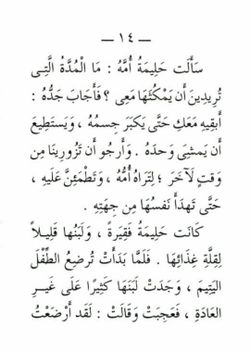 — ١٤ —
سَأَلَت حَلِيمَةُ أُمَّهُ : مَا الْمُدَّةُ الَّتِى
تُرِيدِينَ أَن يَمْكُثَهَا مَعِى ؟ فَأَجَابَ جَدُّهُ :
أَبقِيهِ مَعَكِ حَتَّى يَكبَرَ جِسمُهُ ، وَيَستَطِيعَ
أَن يَمشِىَ وَحدَهُ . وَأَرجُو أَن تَزُورِينَا مِن
وَقتٍ لِآخَرَ ؛ لِتَرَاهُ أُمُّهُ ، وَتَطْمَئِنَّ عَلَيهِ ،
حَتَّى تَهدَأَ نَفسُهَا مِن جِهَتِهِ .
كَانَت حَلِيمَةُ فَقِيرَةً ، وَلَبَنُهَا قَلِيلاً
لِقِلَّةِ غِذَائِهَا . فَلَمَّا بَدَأَتْ تُرضِعُ الطِّفْلَ
اليَتِيمَ ، وَجَدَتْ لَبَنَهَا كَثِيرًا عَلَى غَيرِ
العَادَةِ ، فَعَجِبَتْ وَقَالَتْ : لَقَد أَرْضَعْتُ